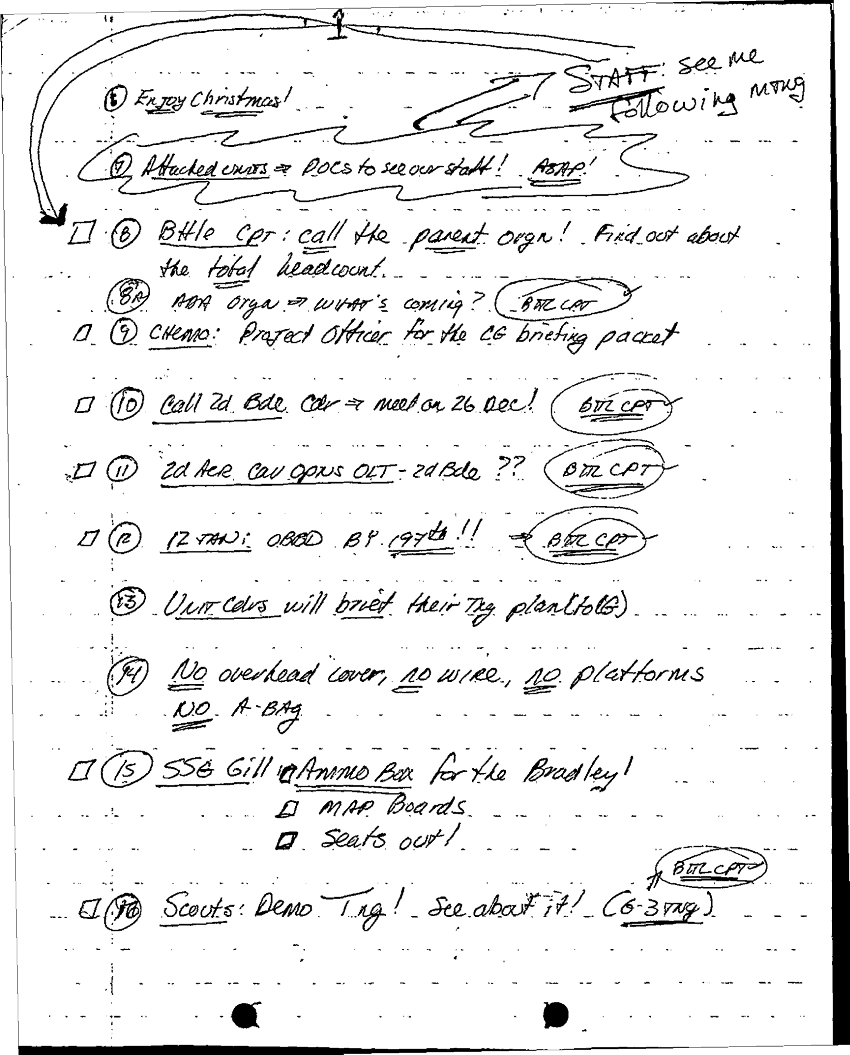 STAFF: see me
following mtng
⑥ Enjoy Christmas!
⑦ Attached units ⇒ POCs to see our staff! ASAP!
□ ⑧ Bttle CPT: call the parent orgn! Find out about
the total headcount.
8A ADA orgn ⇒ WHAT's coming? BTL CPT
□ ⑨ CHEMO: Project Officer for the CG briefing packet
□ ⑩ Call 2d Bde Cdr ⇒ meet on 26 Dec! BTL CPT
□ ⑪ 2d ACR Cav OPNS - 2d Bde ?? BTL CPT
□ ⑫ BY 197th!! ⇒ BTL CPT
⑬ Unit Cdrs will brief their Tng plan (to CG)
⑭ No overhead cover, no wire, no platforms
NO A-BAg
□ ⑮ SSG Gill □ Ammo Box for the Bradley!
□ MAP Boards
□ Seats out!
BTL CPT
□ ⑯ Scouts: Demo Tng! See about it! (G-3 TNG)